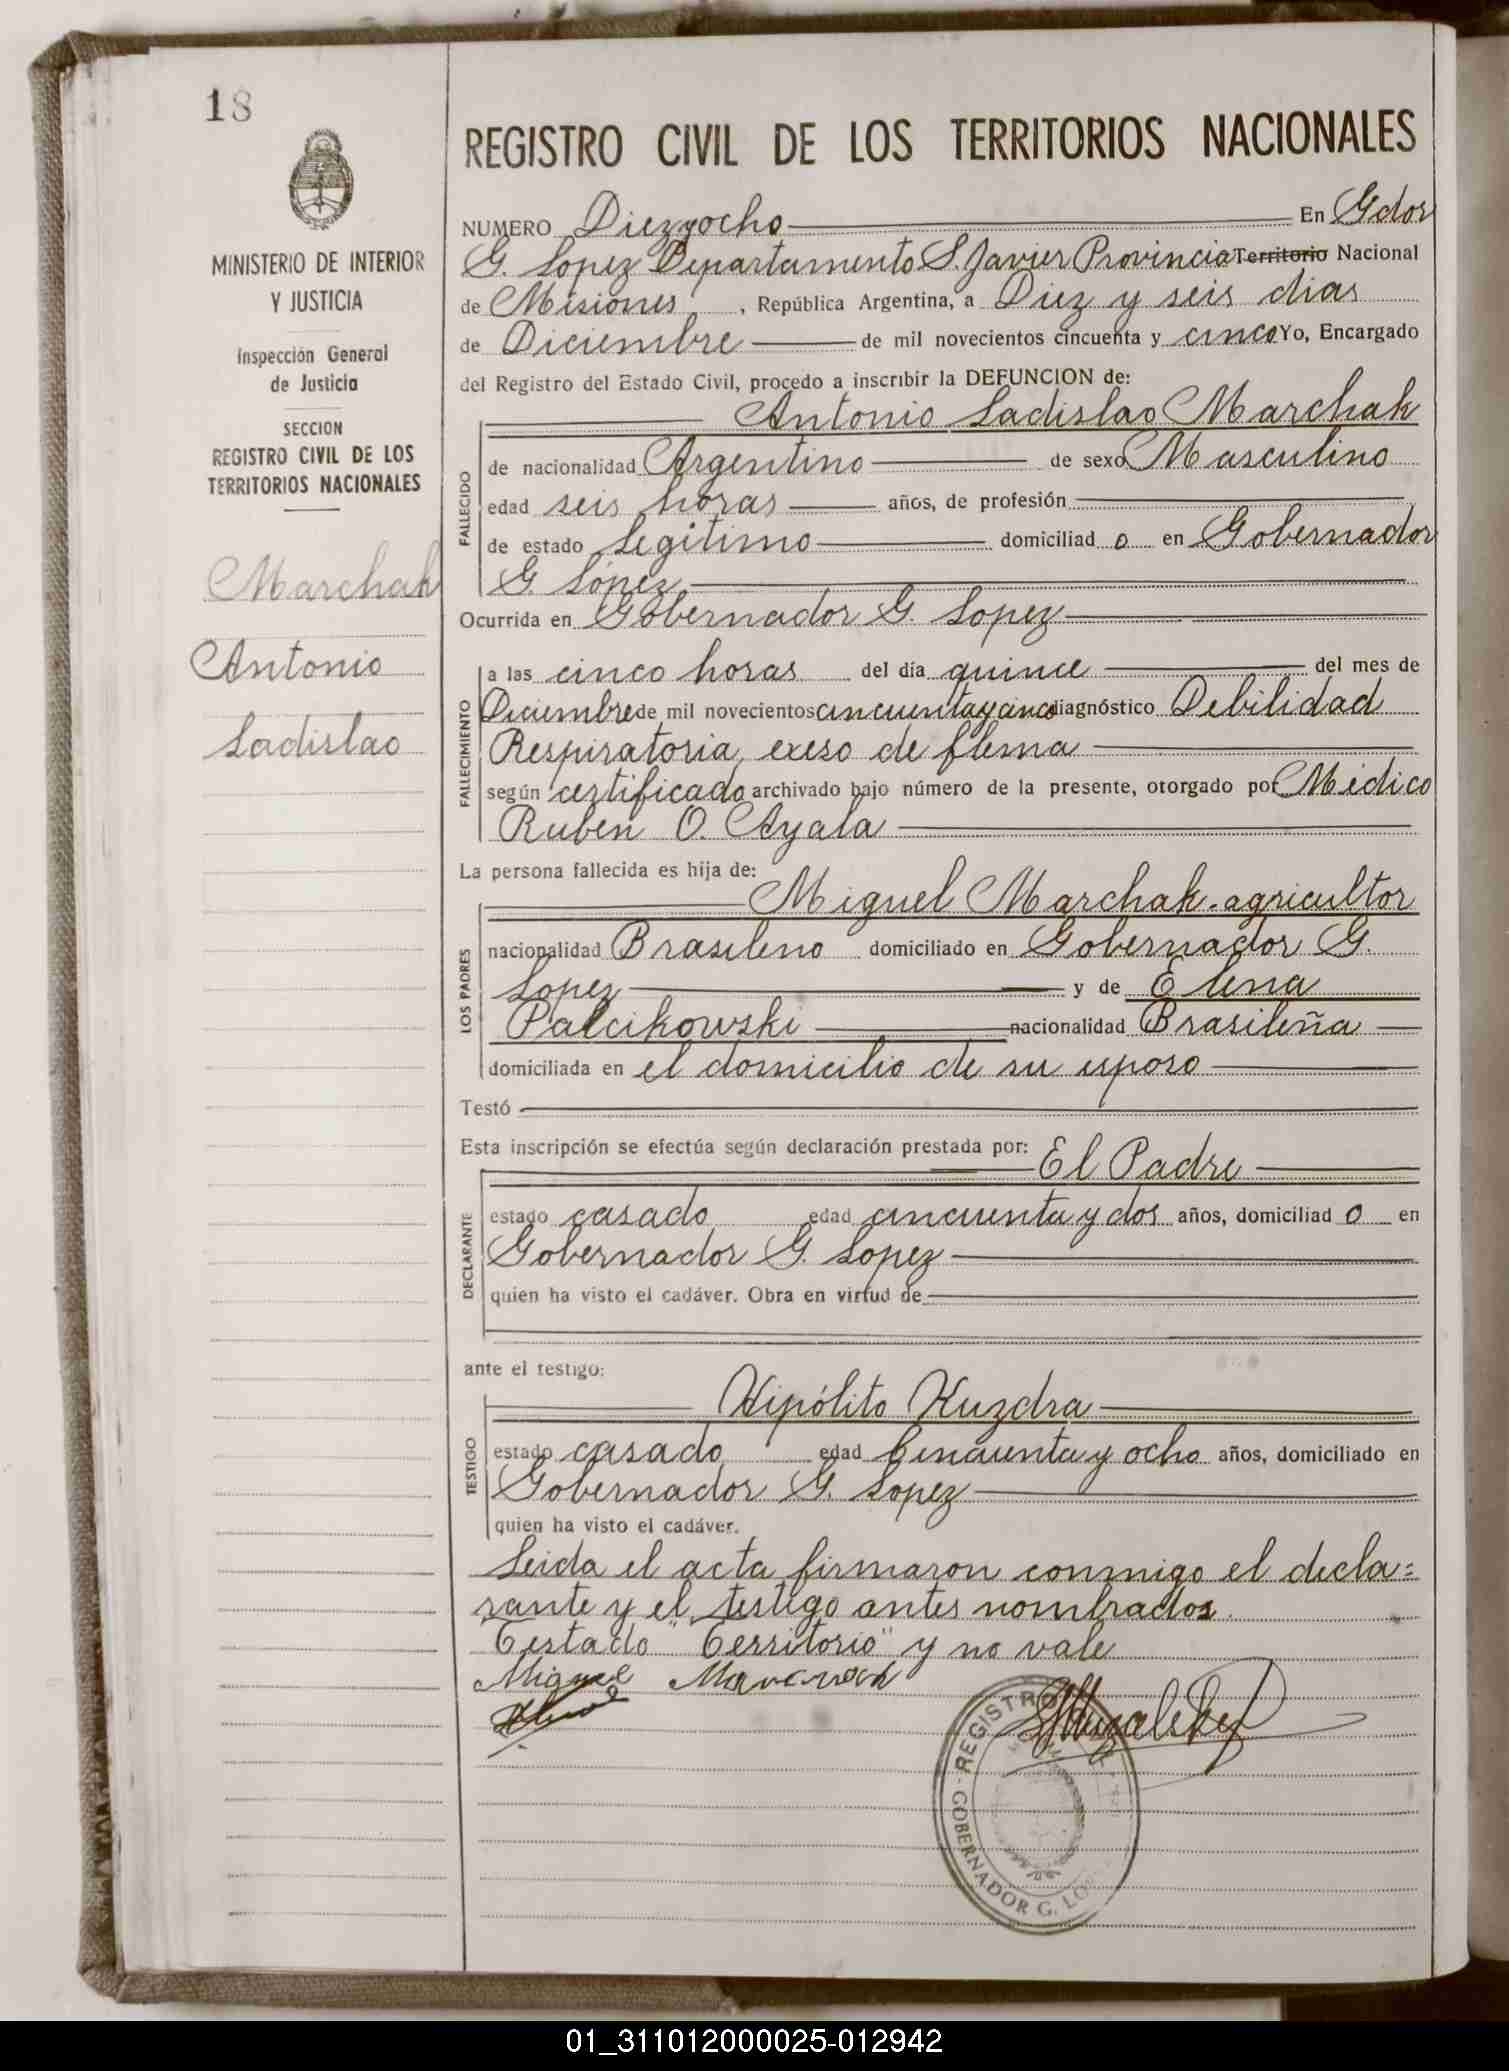 18
MINISTERIO DE INTERIOR
Y JUSTICIA
Inspección General
de Justicia
SECCION
REGISTRO CIVIL DE LOS
TERRITORIOS NACIONALES
Marchak
Antonio
Ladislao
REGISTRO CIVIL DE LOS TERRITORIOS NACIONALES
NUMERO Diezyocho En Gdor
G. Lopez Departamento S. Javier Provincia Territorio Nacional
de Misiones, República Argentina, a Diez y seis dias
de Diciembre de mil novecientos cincuenta y cinco Yo, Encargado
del Registro del Estado Civil, procedo a inscribir la DEFUNCION de:
Antonio Ladislao Marchak
FALLECIDO
de nacionalidad Argentino de sexo Masculino
edad seis horas años, de profesión
de estado Legitimo domiciliad o en Gobernador
G. López
Ocurrida en Gobernador G. Lopez
FALLECIMIENTO
a las cinco horas del día quince del mes de
Diciembre de mil novecientos cincuentaycinco diagnóstico Debilidad
Respiratoria, exeso de flema
según certificado archivado bajo número de la presente, otorgado por Médico
Ruben O. Ayala
La persona fallecida es hija de:
Miguel Marchak. agricultor
LOS PADRES
nacionalidad Brasileno domiciliado en Gobernador G.
Lopez y de Elena
Palcikowski nacionalidad Brasileña
domiciliada en el domicilio de su esposo
Testó
Esta inscripción se efectúa según declaración prestada por: El Padre
DECLARANTE
estado casado edad cincuenta y dos años, domiciliad o en
Gobernador G. Lopez
quien ha visto el cadáver. Obra en virtud de
ante el testigo:
Hipólito Kuzdra
TESTIGO
estado casado edad Cincuenta y ocho años, domiciliado en
Gobernador G. Lopez
quien ha visto el cadáver.
Leida el acta firmaron conmigo el decla=
rante y el testigo antes nombrados.
Testado "Territorio" y no vale
Miguel
REGISTRO
GOBERNADOR G. LO
01_311012000025-012942